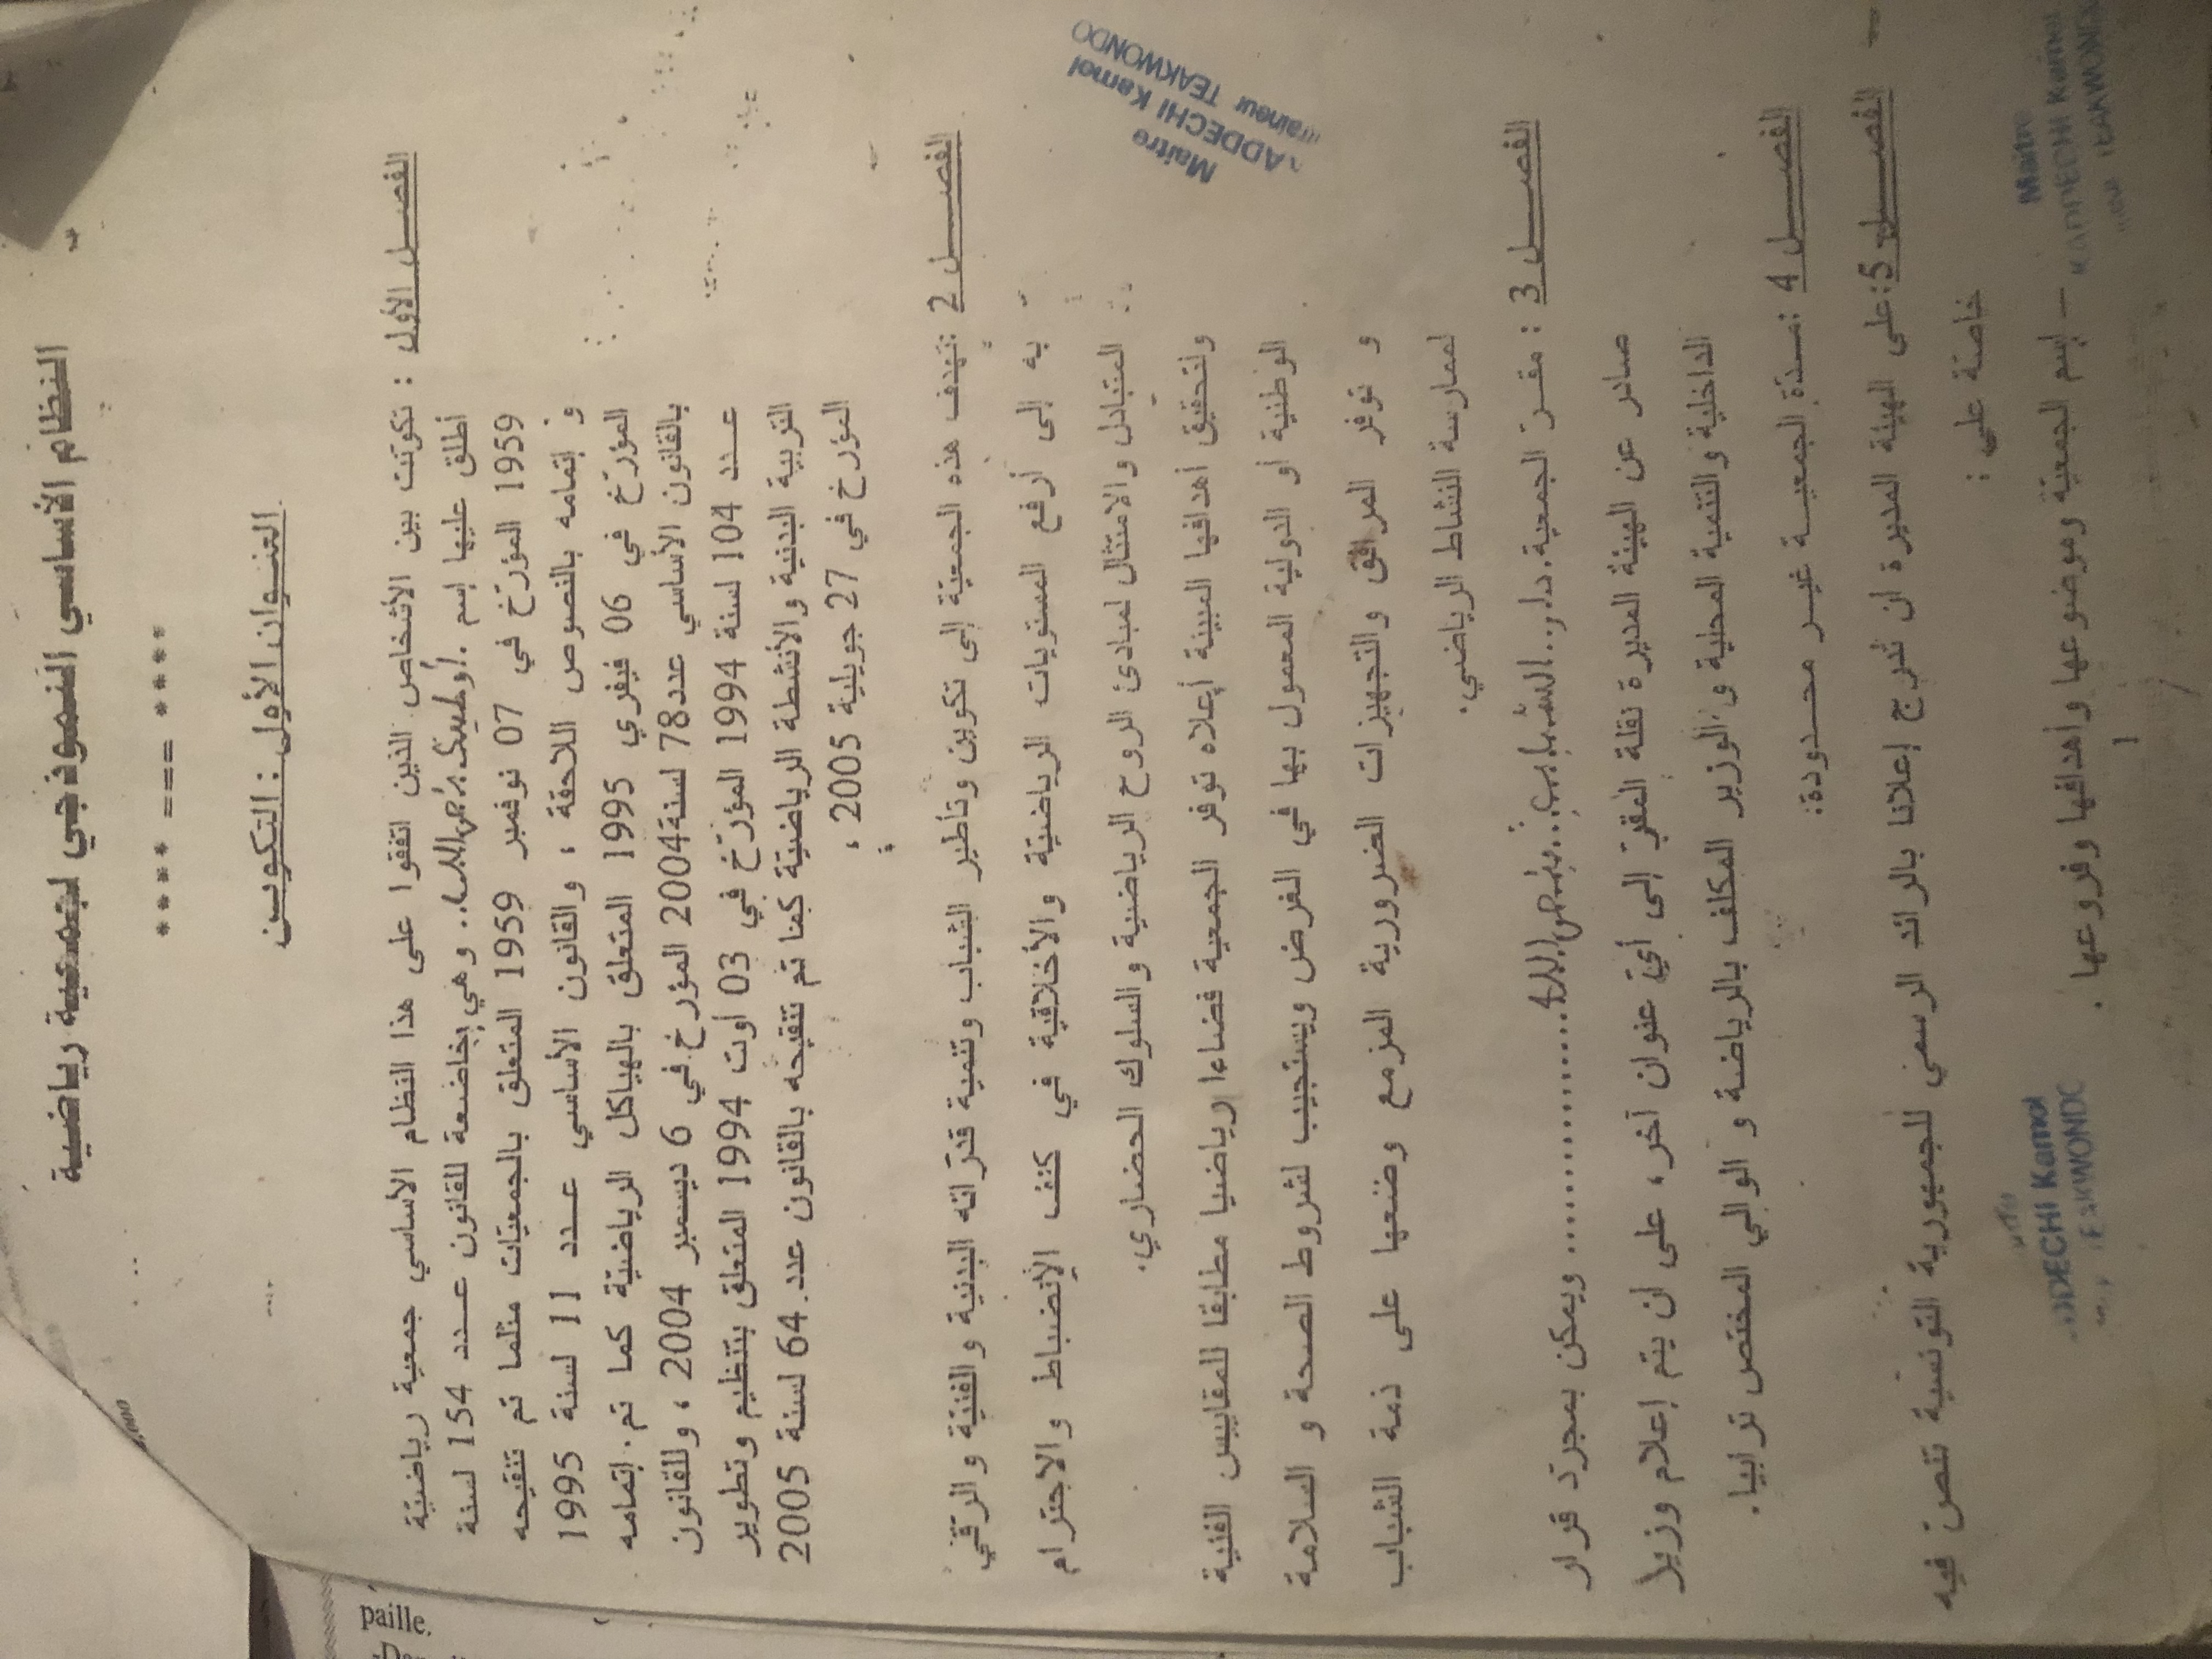 النظام الأساسي النموذجي لجمعية رياضية
**** === ****
العنـوان الأول : التكويـن
الفصـــل الأول : تكونت بين الأشخاص الذين اتفقوا على هذا النظام الأساسي جمعية رياضية
أطلق عليها إسم .. وهي خاضعة للقانون عـدد 154 لسنة
1959 المؤرخ في 07 نوفمبر 1959 المتعلق بالجمعيات مثلما تم تنقيحه
و إتمامه بالنصوص اللاحقة ، والقانون الأساسي عـدد 11 لسنة 1995
المؤرخ في 06 فيفري 1995 المتعلق بالهياكل الرياضية كما تم إتمامه
بالقانون الأساسي عدد78 لسنة2004 المؤرخ في 6 ديسمبر 2004 ، وللقانون
عـدد 104 لسنة 1994 المؤرخ في 03 أوت 1994 المتعلق بتنظيم وتطوير
التربية البدنية والأنشطة الرياضية كما تم تنقيحه بالقانون عدد 64 لسنة 2005
المؤرخ في 27 جويلية 2005 ،
الفصـــل 2 :تهدف هذه الجمعية إلى تكوين وتأطير الشباب وتنمية قدراته البدنية والفنية والرقي
به إلى أرفع المستويات الرياضية والأخلاقية في كنف الإنضباط والاحترام
المتبادل والامتثال لمبادئ الروح الرياضية والسلوك الحضاري.
ولتحقيق أهدافها المبينة أعلاه توفر الجمعية فضاءا رياضيا مطابقا للمقاييس الفنية
الوطنية أو الدولية المعمول بها في الغرض ويستجيب لشروط الصحة و السلامة
و توفر المرافق والتجهيزات الضرورية المزمع وضعها على ذمة الشباب
لممارسة النشاط الرياضي.
الفصـــل 3 : مقـر الجمعية. دار الشباب ............ ويمكن بمجرد قرار
صادر عن الهيئة المديرة نقلة المقر إلى أي عنوان آخر، على ان يتم إعلام وزير
الداخلية والتنمية المحلية و الوزير المكلف بالرياضة و الوالي المختص ترابيا.
الفصـــل 4 :مـدة الجمعيـة غيـر محـدودة:
الفصـــل 5 :على الهيئة المديرة ان تدرج إعلانا بالرائد الرسمي للجمهورية التونسية تنص فيه
خاصة على :
– إسم الجمعية وموضوعها وأهدافها وفروعها .
1
Maitre
ADDECHI Kamel
raineur TEAKWONDO
Maitre
KADDECHI Kamel
TEAKWONDO
DDECHI Kamel